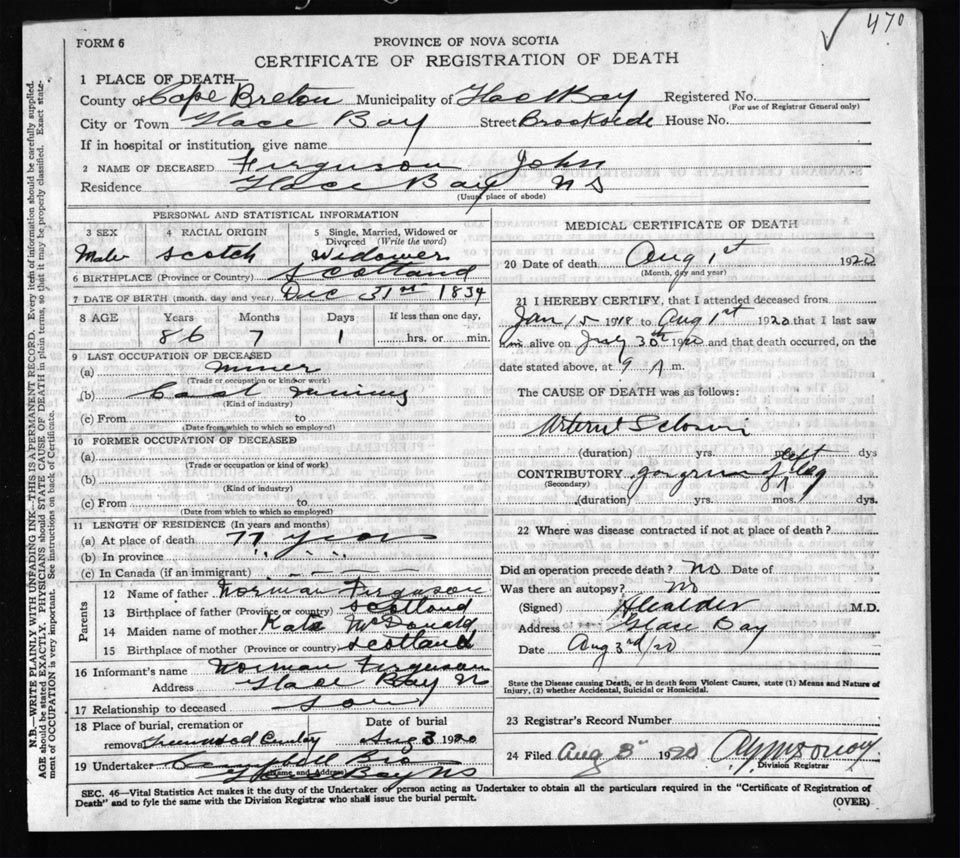 470
FORM 6
PROVINCE OF NOVA SCOTIA
CERTIFICATE OF REGISTRATION OF DEATH
1 PLACE OF DEATH—
County of Cape Breton Municipality of Glace Bay Registered No.
(For use of Registrar General only)
City or Town Glace Bay Street Brookside House No.
If in hospital or institution, give name
2 NAME OF DECEASED Ferguson John
Residence Glace Bay NS
(Usual place of abode)
PERSONAL AND STATISTICAL INFORMATION
3 SEX
Male
4 RACIAL ORIGIN
Scotch
5 Single, Married, Widowed or Divorced (Write the word)
Widower
6 BIRTHPLACE (Province or Country) Scotland
7 DATE OF BIRTH (month, day and year) Dec 31st 1834
8 AGE Years Months Days If less than one day,
86 7 1 hrs. or min.
9 LAST OCCUPATION OF DECEASED
(a) miner
(Trade or occupation or kind or work)
(b) Coal mining
(Kind of industry)
(c) From to
(Date from which to which so employed)
10 FORMER OCCUPATION OF DECEASED
(a)
(Trade or occupation or kind of work)
(b)
(Kind of industry)
(c) From to
(Date from which to which so employed)
11 LENGTH OF RESIDENCE (In years and months)
(a) At place of death 77 years
(b) In province " "
(c) In Canada (if an immigrant)
Parents
12 Name of father Norman Ferguson
13 Birthplace of father (Province or country) Scotland
14 Maiden name of mother Kate McDonald
15 Birthplace of mother (Province or country) Scotland
16 Informant's name Norman Ferguson
Address Glace Bay NS
17 Relationship to deceased Son
18 Place of burial, cremation or Date of burial
removal Greenwood Aug 3 1920
19 Undertaker Campbell Bro
(Name and Address) Glace Bay NS
MEDICAL CERTIFICATE OF DEATH
20 Date of death Aug 1st 1920
(Month, day and year)
21 I HEREBY CERTIFY, that I attended deceased from
Jan 15 1918 to Aug 1st 1920 that I last saw
him alive on July 30th 1920 and that death occurred, on the
date stated above, at 9 A m.
The CAUSE OF DEATH was as follows:
(duration) yrs. mos. dys
CONTRIBUTORY gangrene of left leg
(Secondary)
(duration) yrs. mos. dys.
22 Where was disease contracted if not at place of death?
Did an operation precede death? No Date of
Was there an autopsy? No
(Signed) M.D.
Address Glace Bay
Date Aug 3rd/20
State the Disease causing Death, or in death from Violent Causes, state (1) Means and Nature of
Injury, (2) whether Accidental, Suicidal or Homicidal.
23 Registrar's Record Number
24 Filed Aug 3rd 1920
Division Registrar
SEC. 46—Vital Statistics Act makes it the duty of the Undertaker or person acting as Undertaker to obtain all the particulars required in the "Certificate of Registration of
Death" and to fyle the same with the Division Registrar who shall issue the burial permit.
(OVER)
N.B.—WRITE PLAINLY WITH UNFADING INK—THIS IS A PERMANENT RECORD. Every item of information should be carefully supplied.
AGE should be stated EXACTLY. PHYSICIANS should STATE CAUSE OF DEATH in plain terms, so that it may be properly classified. Exact state-
ment of OCCUPATION is very important. See instructions on back of Certificate.